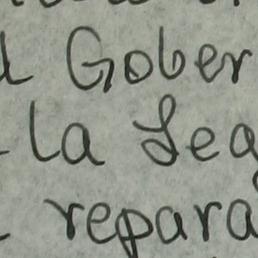 l Gober
la Seg
repara